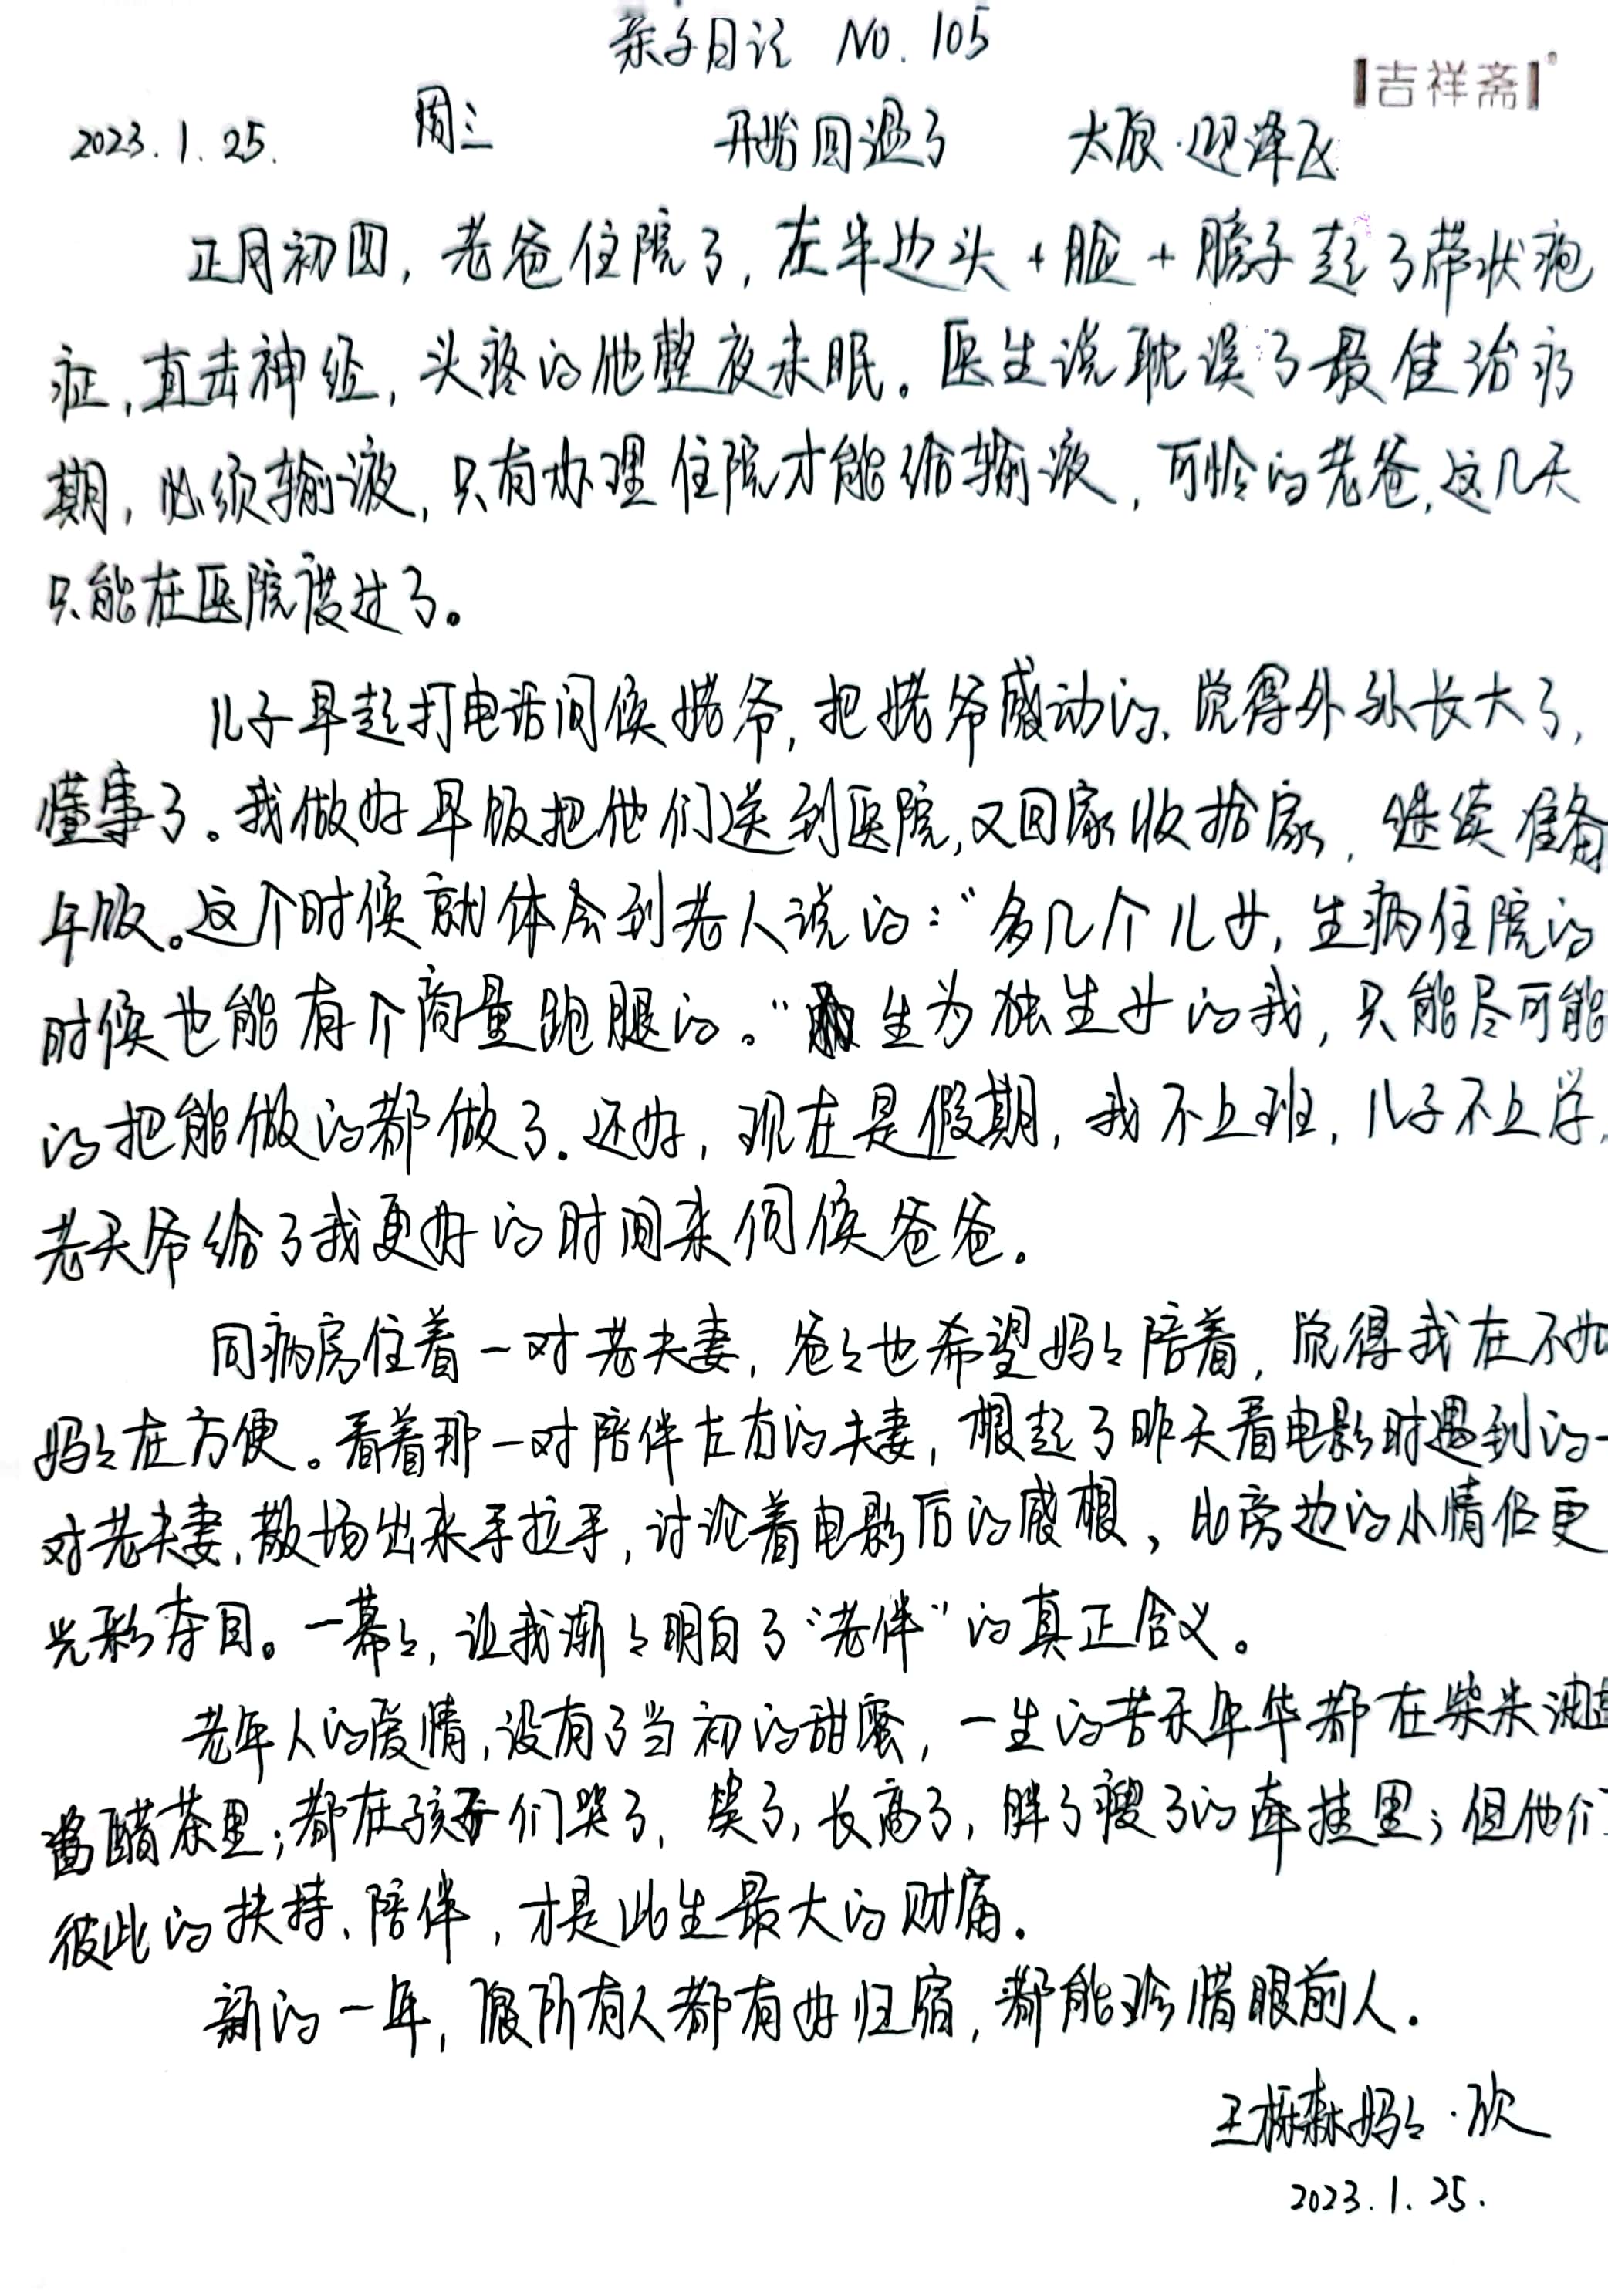 亲子日记 NO.105
吉祥斋
2023.1.25. 周三 开始回温了 太原·迎泽区
正月初四，老爸住院了，在半边头+脸+膀子起了带状疱
症，直击神经，头疼的他整夜未眠。医生说耽误了最佳治疗
期，必须输液，只有办理住院才能给输液，可怜的老爸，这几天
只能在医院度过了。
儿子早起打电话问候姥爷，把姥爷感动的、觉得外孙长大了，
懂事了。我做好早饭把他们送到医院，又回家收拾家，继续准备
年饭。这个时候就体会到老人说的：“多几个儿女，生病住院的
时候也能有个商量跑腿的。”生为独生女的我，只能尽可能
的把能做的都做了.还好，现在是假期，我不上班，儿子不上学，
老天爷给了我更好的时间来伺候爸爸。
同病房住着一对老夫妻，爸々也希望妈々陪着，觉得我在不如
妈々在方便。看着那一对陪伴左右的夫妻，想起了昨天看电影时遇到的一
对老夫妻，散场出来手拉手，讨论着电影后的感想，比旁边的小情侣更
光彩夺目。一幕々，让我渐々明白了“老伴”的真正含义。
老年人的爱情，没有了当初的甜蜜，一生的苦禾年华都在柴米油盐
酱醋茶里；都在孩子们哭了，笑了，长高了，胖了瘦了的牵挂里；但他们
彼此的扶持、陪伴，才是此生最大的财富。
新的一年，愿所有人都有好归宿，都能珍惜眼前人.
王栎森妈々·欣
2023.1.25.